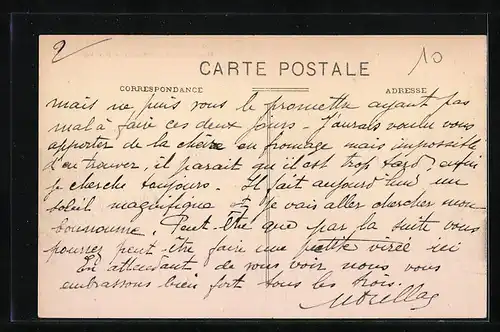 2
10
CARTE POSTALE
CORRESPONDANCE
ADRESSE
mais ne puis vous le promettre ayant pas
mal à faire ces deux jours - J'aurais voulu vous
apporter de la chèvre en fromage mais impossible
d'en trouver, il parait qu'il est trop tard, enfin
je cherche toujours. Il fait aujourd'hui un
soleil magnifique et je vais aller chercher mon
Peut-être que par la suite vous
pourrez peut-être faire une petite virée ici
En attendant de vous voir nous vous
embrassons bien fort tous les trois.